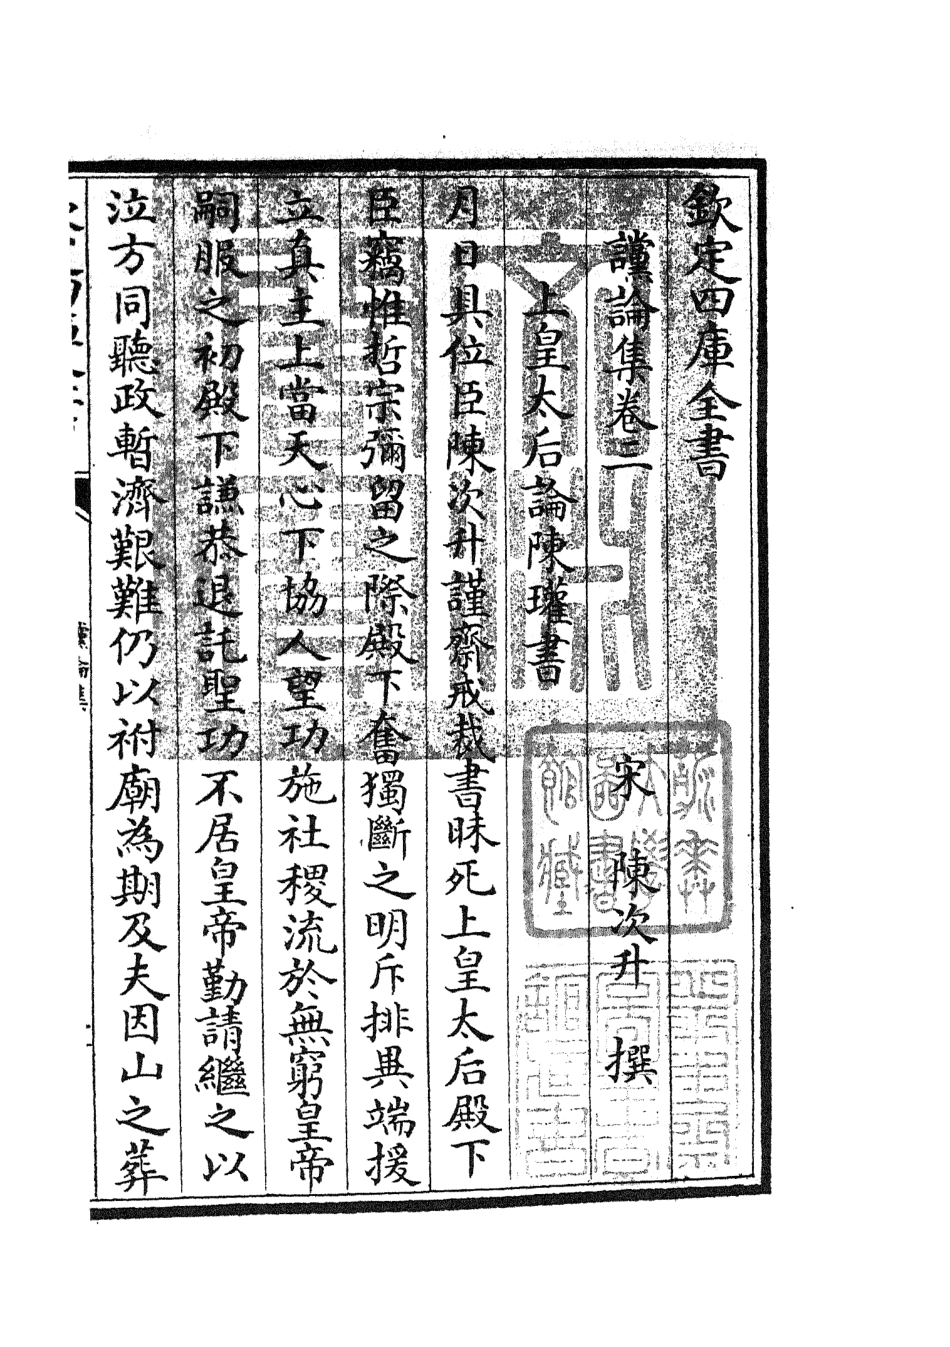 欽定四庫全書
讜論集卷三　宋　陳次升　撰
上皇太后論陳瓘書
月日具位臣陳次升謹齋戒裁書昧死上皇太后殿下
臣竊惟哲宗彌留之際殿下奮獨斷之明斥排異端援
立真主上當天心下協人望功施社稷流於無窮皇帝
嗣服之初殿下謙恭退託聖功不居皇帝勤請繼之以
泣方同聽政暫濟艱難仍以祔廟為期及夫因山之葬